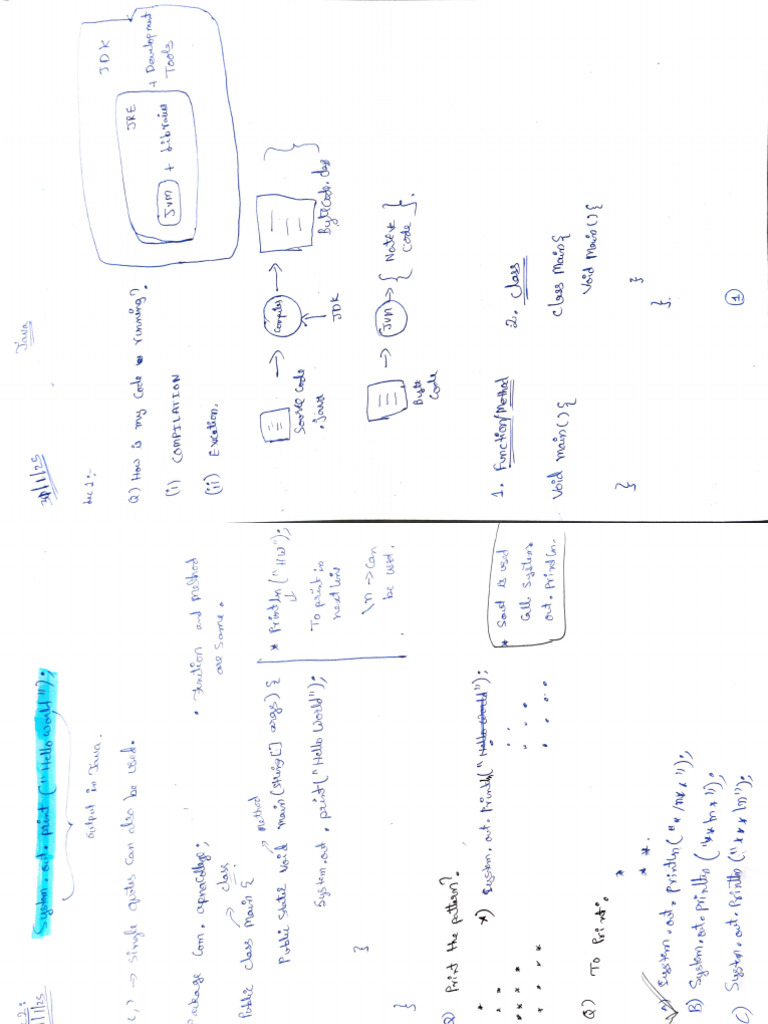 31/1/25
Java
Lec 1:-
Q) How is my code running?
(i) COMPILATION
(ii) Excetion.
JDK
JRE
JVM + Libraries
+ Development
Tools
Source Code
.java
Compiler
JDK
ByteCode.class
Byte
Code
JVM
Native
Code
1. Function/Method
void main(){
}
2. Class
class Main{
void main(){
}
}.
1
System.out.print("Hello World");
output in Java.
(' ') → single quotes can also be used.
Package Com.apnaCollege;
class
Public class Main {
Method
Public static void main(String[] args) {
System.out.print("Hello World");
}
}
• Function and method
are same.
* Println("HW");
To print in
next line
\n → can
be used.
Q) Print the pattern?
*
* *
* * *
* * * *
*) System.out.println("Hello World");
* Sout is used
call System.
out.println.
Q) To Print:
*
* *
A) System.out.println("*\n**");
B) System.out.println("**\n*");
C) System.out.println("***\n");